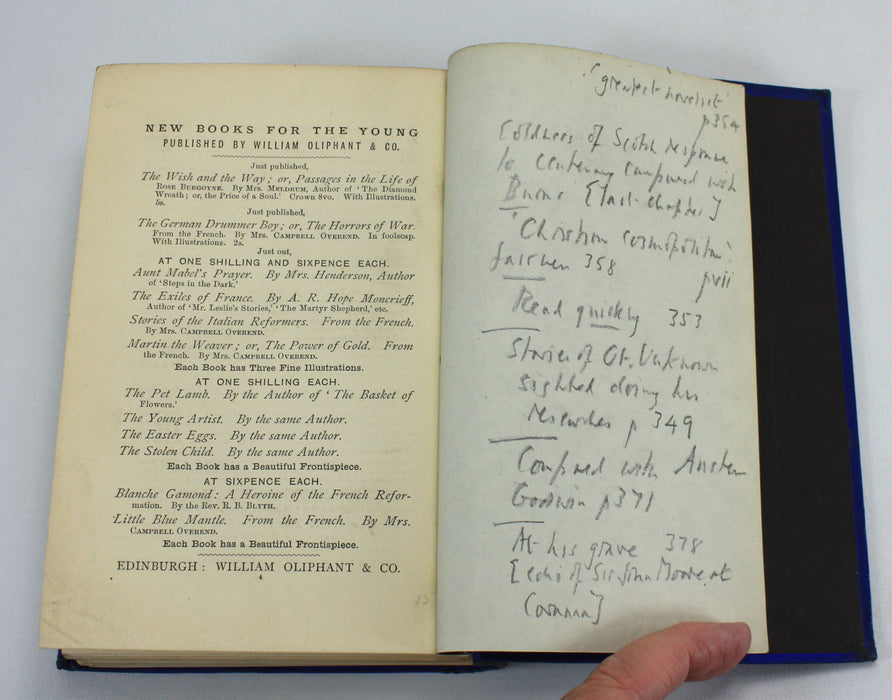 NEW BOOKS FOR THE YOUNG
PUBLISHED BY WILLIAM OLIPHANT & CO.
Just published,
The Wish and the Way; or, Passages in the Life of
ROSE BURGOYNE. By MRS. MELDRUM, Author of 'The Diamond
Wreath; or, the Price of a Soul.' Crown 8vo. With Illustrations.
5s.
Just published,
The German Drummer Boy; or, The Horrors of War.
From the French. By MRS. CAMPBELL OVEREND. In foolscap.
With Illustrations. 2s.
Just out,
AT ONE SHILLING AND SIXPENCE EACH.
Aunt Mabel's Prayer. By Mrs. Henderson, Author
of 'Steps in the Dark.'
The Exiles of France. By A. R. Hope Moncrieff,
Author of 'Mr. Leslie's Stories,' 'The Martyr Shepherd,' etc.
Stories of the Italian Reformers. From the French.
By MRS. CAMPBELL OVEREND.
Martin the Weaver; or, The Power of Gold. From
the French. By MRS. CAMPBELL OVEREND.
Each Book has Three Fine Illustrations.
AT ONE SHILLING EACH.
The Pet Lamb. By the Author of 'The Basket of
Flowers.'
The Young Artist. By the same Author.
The Easter Eggs. By the same Author.
The Stolen Child. By the same Author.
Each Book has a Beautiful Frontispiece.
AT SIXPENCE EACH.
Blanche Gamond: A Heroine of the French Refor-
mation. By the Rev. R. B. BLYTH.
Little Blue Mantle. From the French. By Mrs.
CAMPBELL OVEREND.
Each Book has a Beautiful Frontispiece.
EDINBURGH: WILLIAM OLIPHANT & CO.
4
13
'greatest novelist'
p354
Coldness of Scotch response
to centenary compared with
Burns [last chapter]
'Christian cosmopolitan'
358
pvii
Read quickly 353
Stories of Gt. Unknown
sighted doing his
researches p 349
Compared with Austen
Godwin p371
At his grave 378
[echo of Sir John Moore at
Corunna]